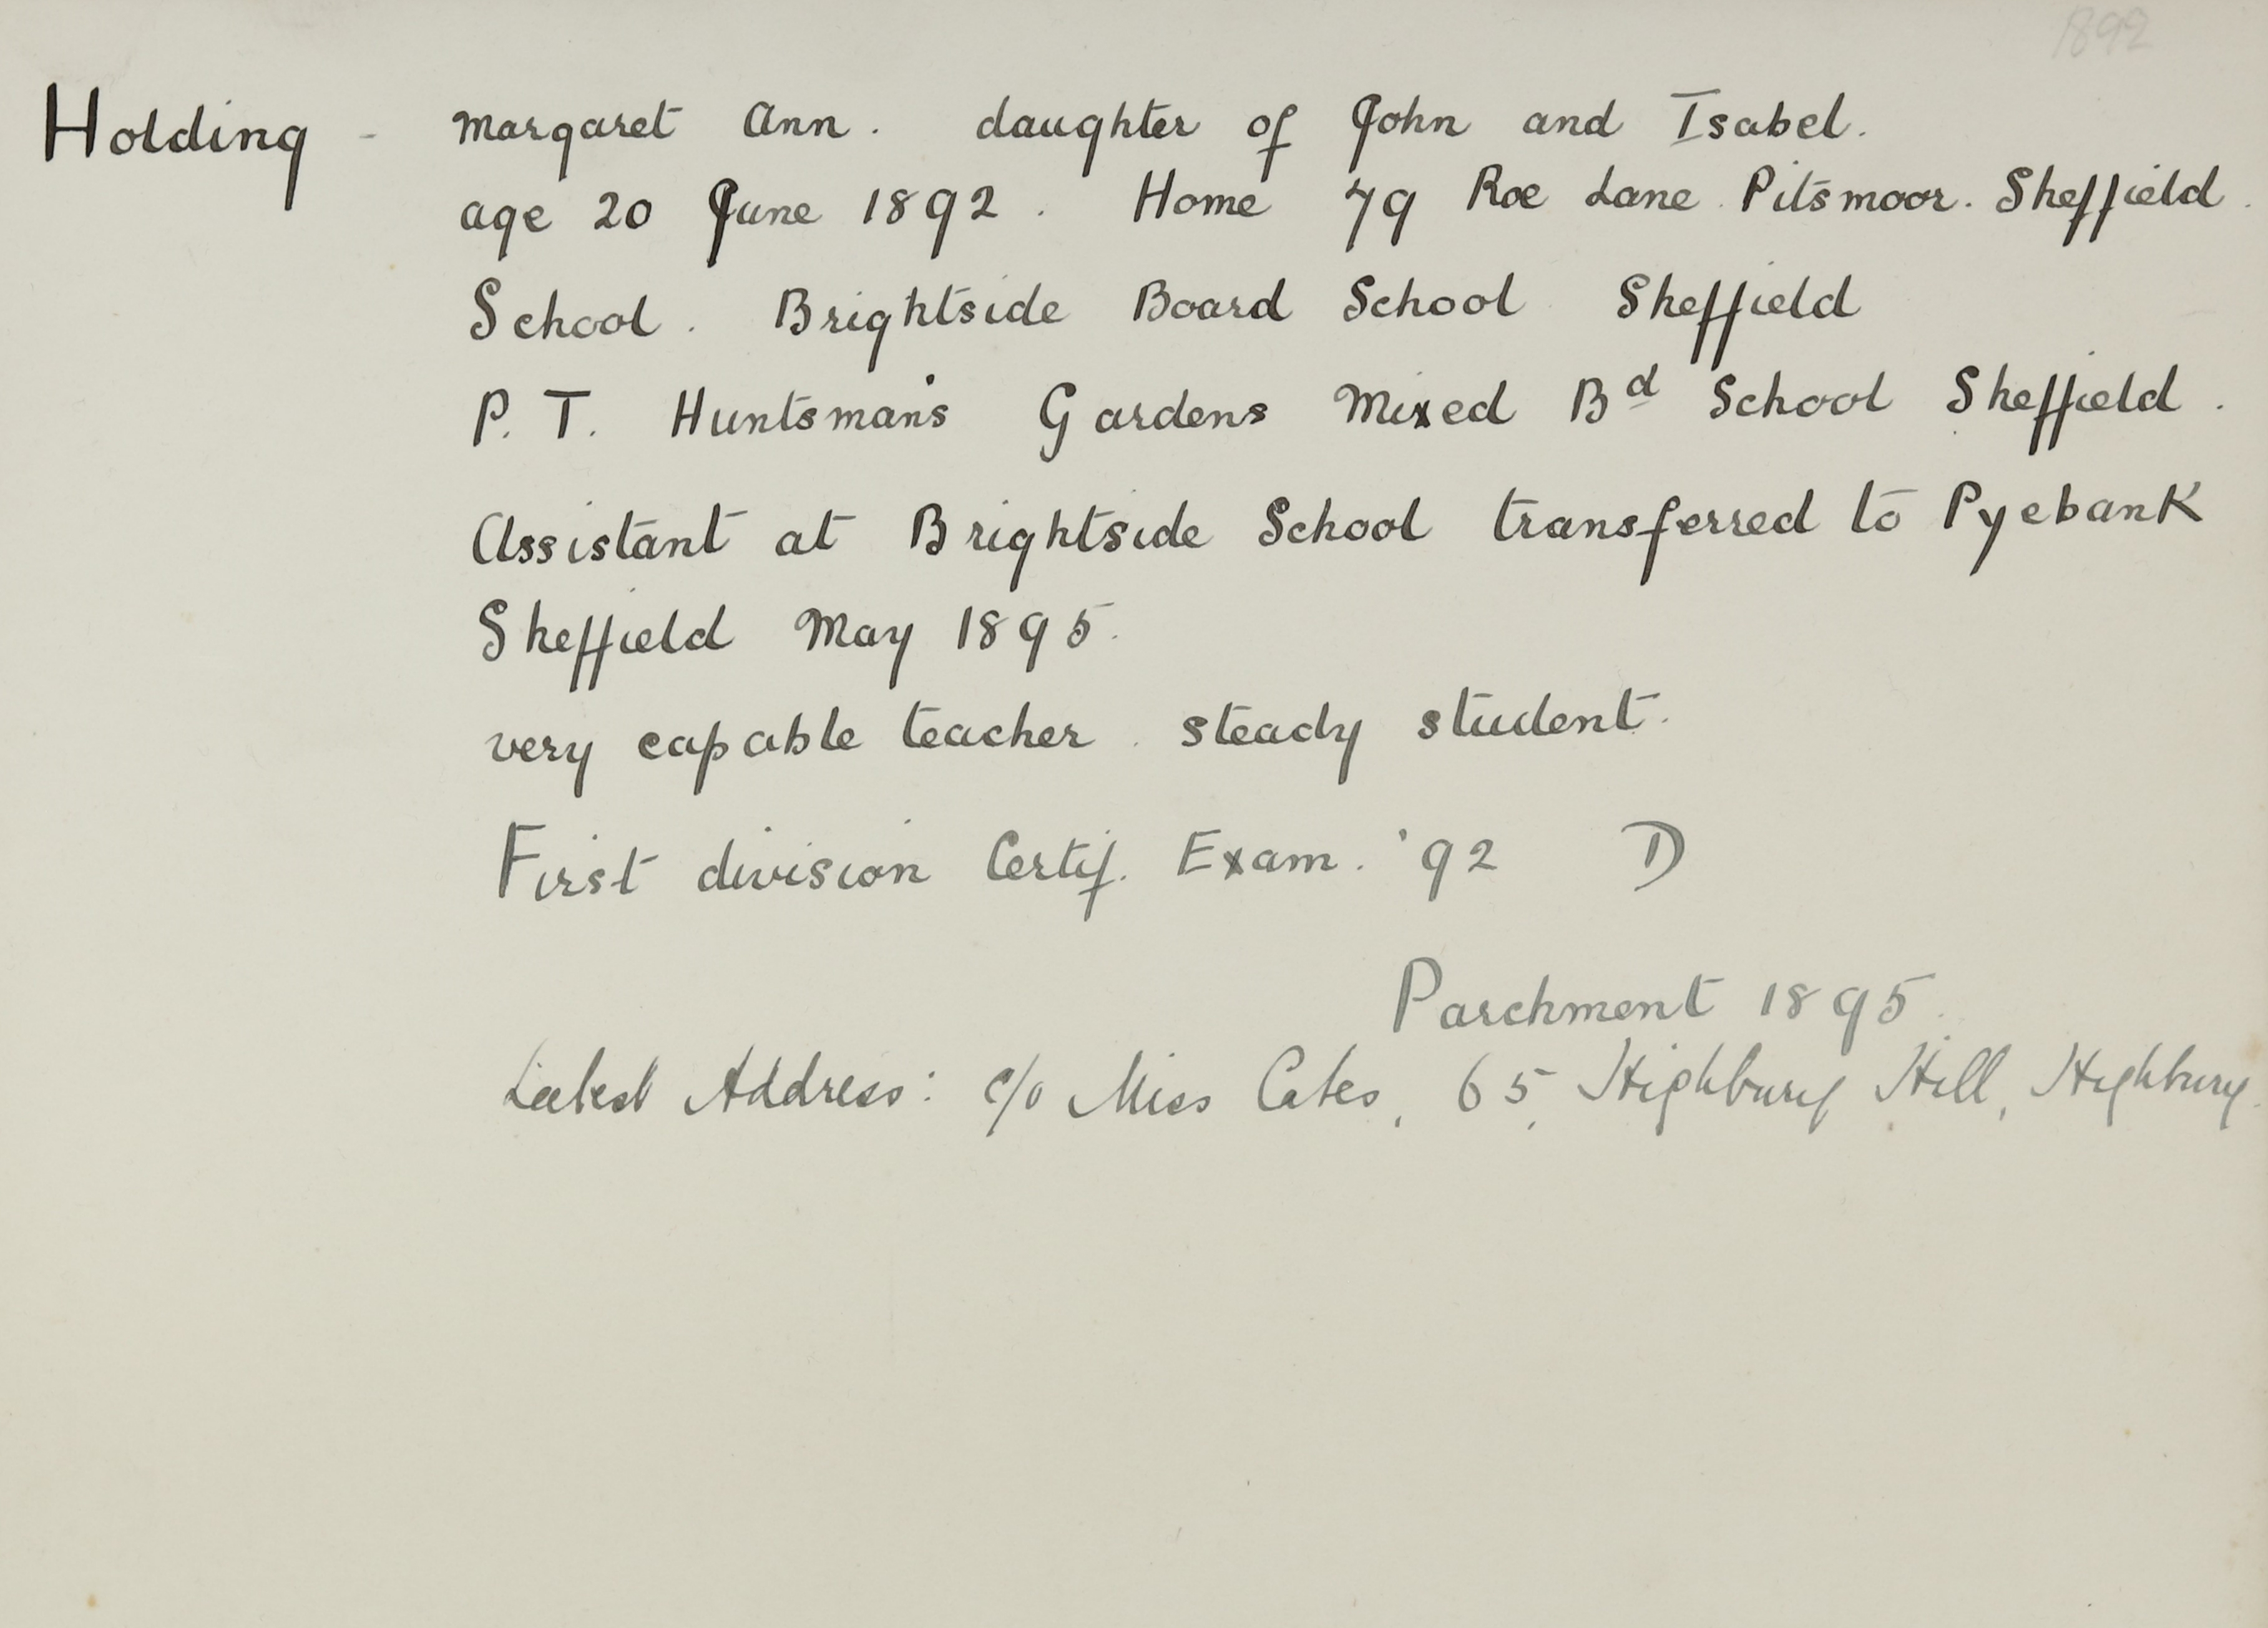 1892
Holding - Margaret Ann. daughter of John and Isabel.
age 20 June 1892. Home 79 Roe Lane Pitsmoor. Sheffield.
School. Brightside Board School Sheffield
P. T. Huntsman's Gardens Mixed Bd School Sheffield.
Assistant at Brightside School transferred to Pyebank
Sheffield May 1895.
very capable teacher. steady student.
First division Certif. Exam. '92 D
Parchment 1895.
Latest Address: c/o Miss Cates, 65, Highbury Hill, Highbury.